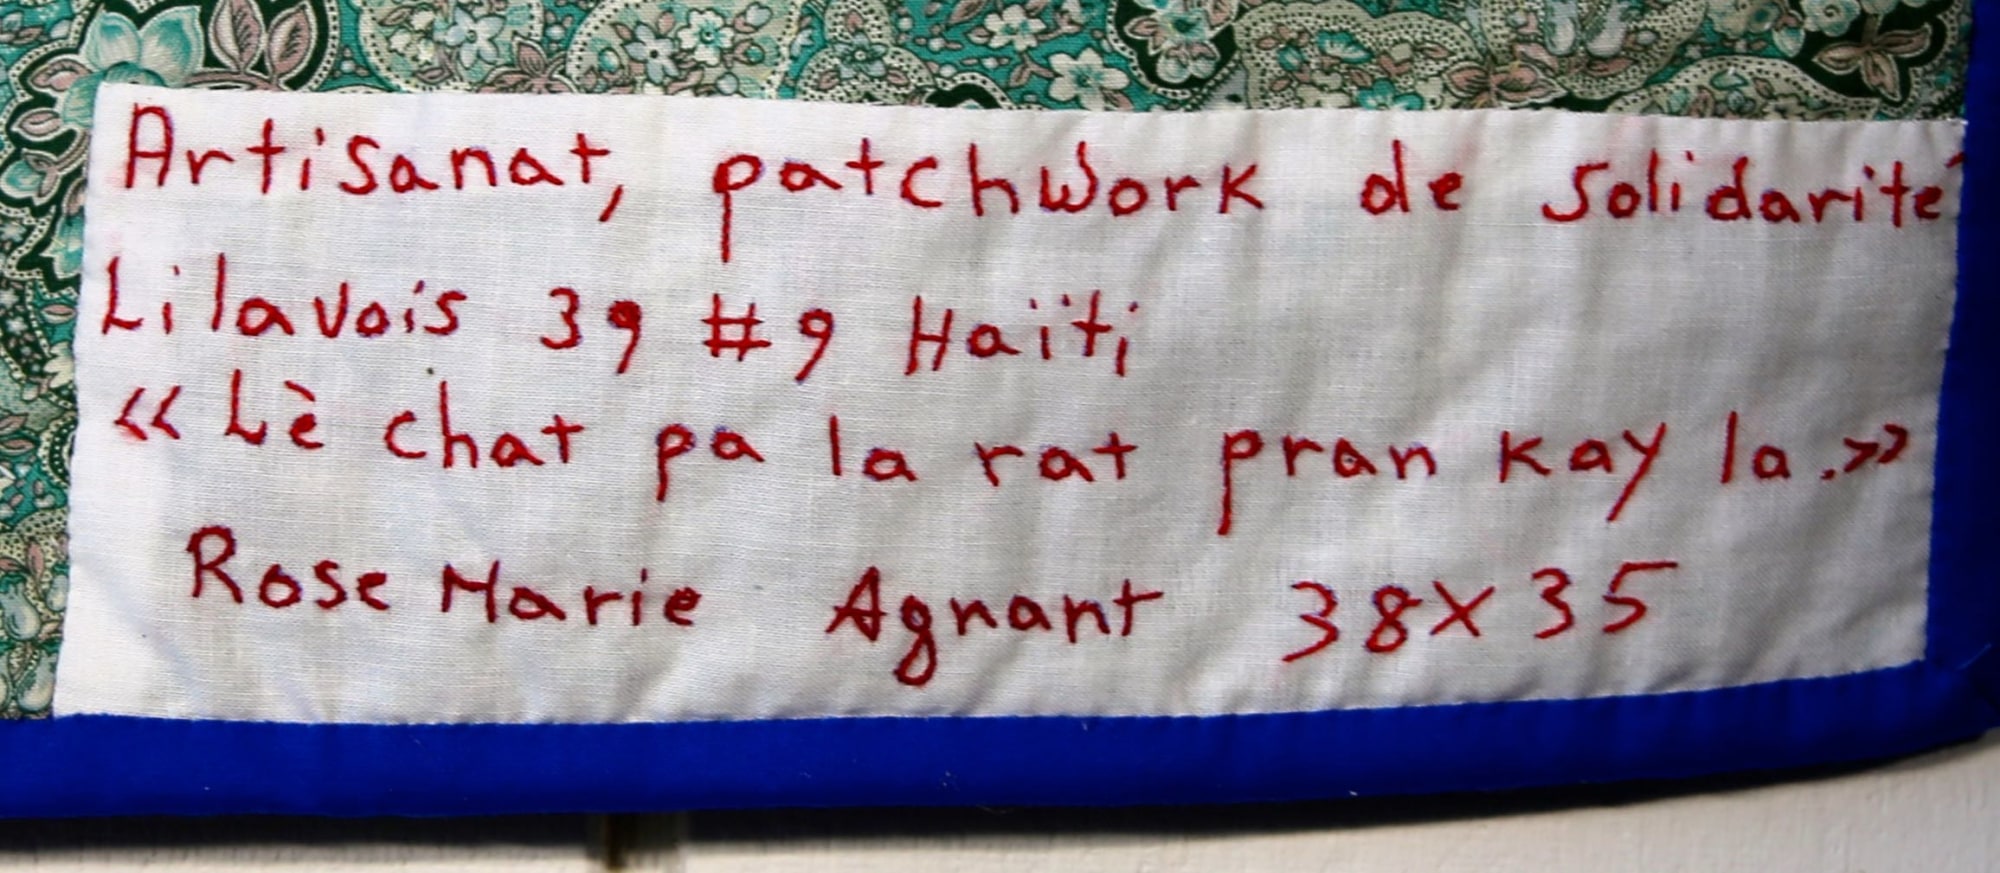 Artisanat, patchwork de solidarité
Lilavois 39 #9 Haïti
<< Lè chat pa la rat pran kay la.>>
Rose Marie Agnant 38X35